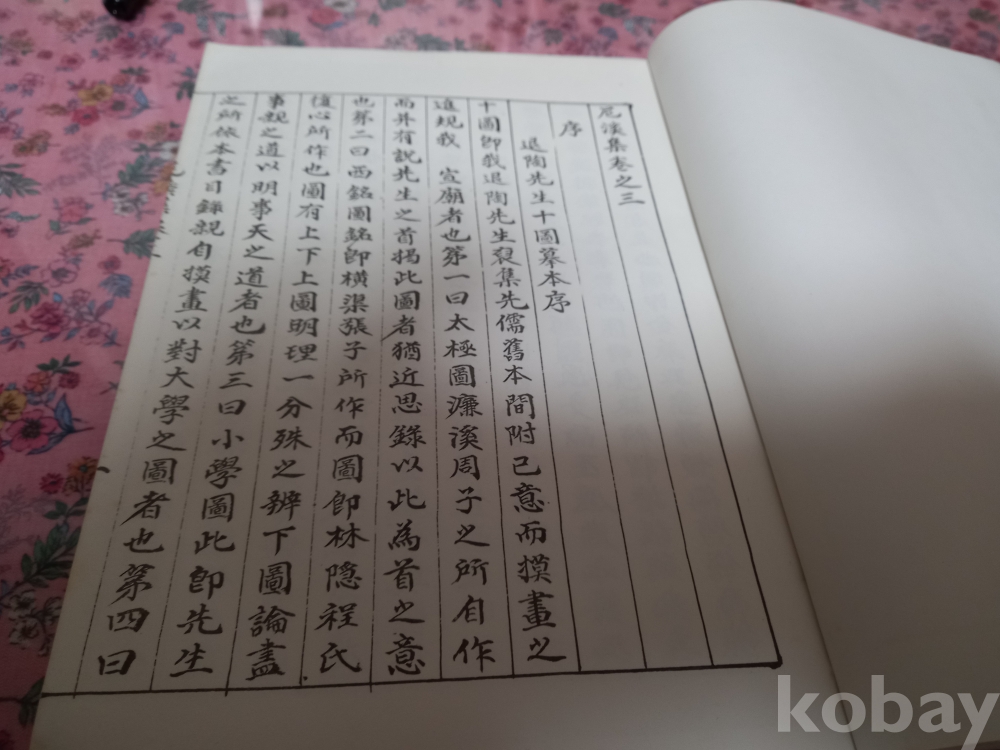 巵溪集卷之三
序
退陶先生十圖摹本序
十圖卽我退陶先生裒集先儒舊本間附己意而摸畫之
進規我 宣廟者也第一曰太極圖濂溪周子之所自作
而幷有說先生之首揭此圖者猶近思錄以此為首之意
也第二曰西銘圖銘卽橫渠張子所作而圖卽林隱程氏
復心所作也圖有上下上圖明理一分殊之辨下圖論盡
事親之道以明事天之道者也第三曰小學圖此卽先生
之所依本書目錄親自摸畫以對大學之圖者也第四曰
kobay